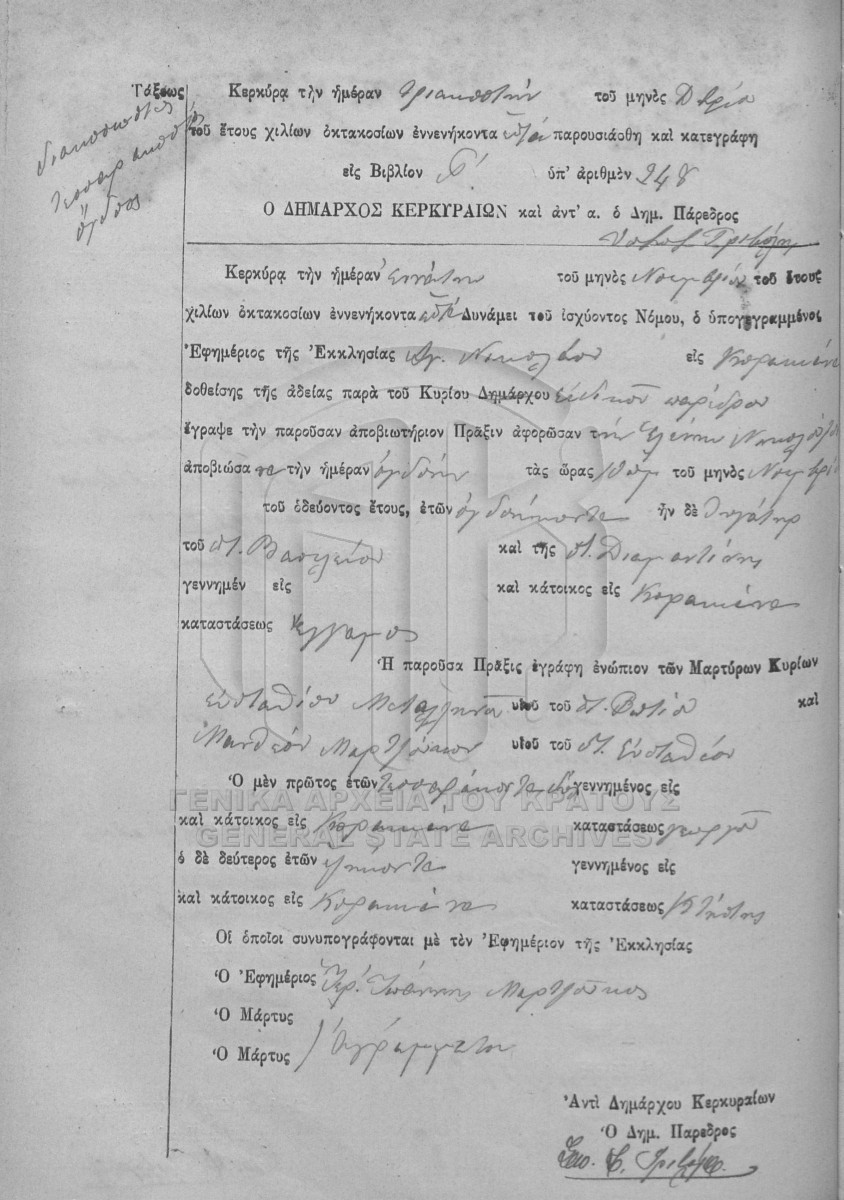 Τάξεως
διακοσιοστός
τεσσαρακοστός
όγδοος
Κερκύρᾳ τὴν ἡμέραν τριακοστήν τοῦ μηνὸς
τοῦ ἔτους χιλίων ὀκτακοσίων ἐννενήκοντα παρουσιάσθη καὶ κατεγράφη
εἰς Βιβλίον Β' ὑπ' ἀριθμὸν 248
Ο ΔΗΜΑΡΧΟΣ ΚΕΡΚΥΡΑΙΩΝ καὶ ἀντ' α. ὁ Δημ. Πάρεδρος
Κερκύρᾳ τὴν ἡμέραν ἐννάτην τοῦ μηνὸς Νοεμβρίου τοῦ ἔτους
χιλίων ὀκτακοσίων ἐννενήκοντα Δυνάμει τοῦ ἰσχύοντος Νόμου, ὁ ὑπογεγραμμένος
Ἐφημέριος τῆς Ἐκκλησίας Ἁγ. Νικολάου εἰς Κορακιάνα
δοθείσης τῆς ἀδείας παρὰ τοῦ Κυρίου Δημάρχου εἰδικοῦ παρέδρου
ἔγραψε τὴν παροῦσαν ἀποβιωτήριον Πρᾶξιν ἀφορῶσαν τήν Ἑλένην
ἀποβιώσασα τὴν ἡμέραν ὀγδόην τὰς ὥρας 10 πμ τοῦ μηνὸς Νοεμβρίου
τοῦ ὁδεύοντος ἔτους, ἐτῶν ὀγδοήκοντα ἦν δὲ θυγάτηρ
τοῦ π. Βασιλείου καὶ τῆς π. Διαμαντίνης
γεννημέν εἰς καὶ κάτοικος εἰς Κορακιάνα
καταστάσεως ἔγγαμος
Ἡ παροῦσα Πρᾶξις ἐγράφη ἐνώπιον τῶν Μαρτύρων Κυρίων
Εὐσταθίου Μεταλληνοῦ υἱοῦ τοῦ π. Φωτίου καὶ
Μανθέου Μαρτζούκου υἱοῦ τοῦ π. Εὐσταθίου
Ὁ μὲν πρῶτος ἐτῶν τεσσαράκοντα δύο γεννημένος εἰς
καὶ κάτοικος εἰς Κορακιάνα καταστάσεως γεωργοῦ
ὁ δὲ δεύτερος ἐτῶν ἑξήκοντα γεννημένος εἰς
καὶ κάτοικος εἰς Κορακιάνα καταστάσεως Κτήστης
Οἱ ὁποῖοι συνυπογράφονται μὲ τὸν Ἐφημέριον τῆς Ἐκκλησίας
Ὁ Ἐφημέριος Ἱερ. Ἰωάννης Μαρτζοῦκος
Ὁ Μάρτυς
Ὁ Μάρτυς ἀγράμματοι
Ἀντὶ Δημάρχου Κερκυραίων
Ὁ Δημ. Παρεδρος
ΓΕΝΙΚΑ ΑΡΧΕΙΑ ΤΟΥ ΚΡΑΤΟΥΣ
GENERAL STATE ARCHIVES